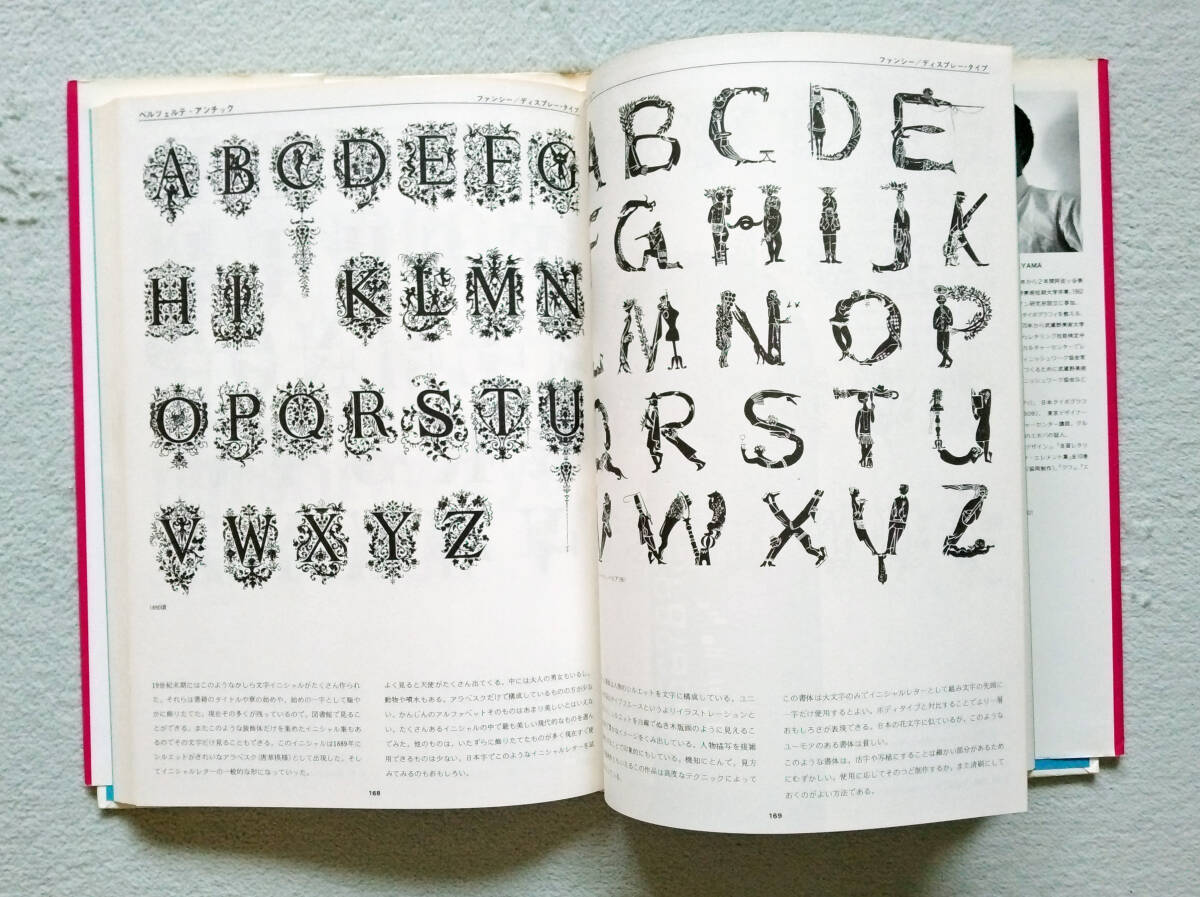 ベルツェルテ・アンチック
ファンシー/ディスプレー・タイプ
A B C D E F G
H I K L M N
O P Q R S T U
V W X Y Z
19世紀末期にはこのようなかしら文字イニシャルがたくさん作られ
た。それらは書籍のタイトルや章の始めや、始めの一字として賑や
かに飾りたてた。現在その多くが残っているので、図書館で見るこ
とができる。またこのような装飾体だけを集めたイニシャル集もあ
るのでその文字だけ見ることもできる。このイニシャルは1889年に
シルエットがきれいなアラベスク(唐草模様)として出現した。そし
てイニシャルレターの一般的な形になっていった。
よく見ると天使がたくさん出てくる。中には大人の男女もいるし、
動物や噴水もある。アラベスクだけで構成しているものの方が少な
い。かんじんのアルファベットそのものはあまり美しいとはいえな
い。たくさんあるイニシャルの中で最も美しい現代的なものを選ん
でみた。他のものは、いたずらに飾りたてたものが多く現在すぐ使
用できるものは少ない。日本字でこのようなイニシャルレターを試
みてみるのもおもしろい。
168
ファンシー/ディスプレー・タイプ
A B C D E
F G H I J K
L M N O P
Q R S T U
V W X Y Z
人物のシルエットを文字に構成している。ユニ
タイプフェースというよりイラストレーションと
ルエットを白線でぬき木版画のように見えるこ
なイメージをくみ出している。人物描写を複雑
ことで印象的にもしている。機知にとんで、見方
いるこの作品は高度なテクニックによって
いる。
この書体は大文字のみでイニシャルレターとして組み文字の先頭に
一字だけ使用するとよい。ボディタイプと対比することでより一層
おもしろさが表現できる。日本の花文字に似ているが、このような
ユーモアのある書体は貧しい。
このような書体は、活字や写植にすることは細かい部分があるため
にむずかしい。使用に応じてそのつど制作するか、また清刷にして
おくのがよい方法である。
169
YAMA